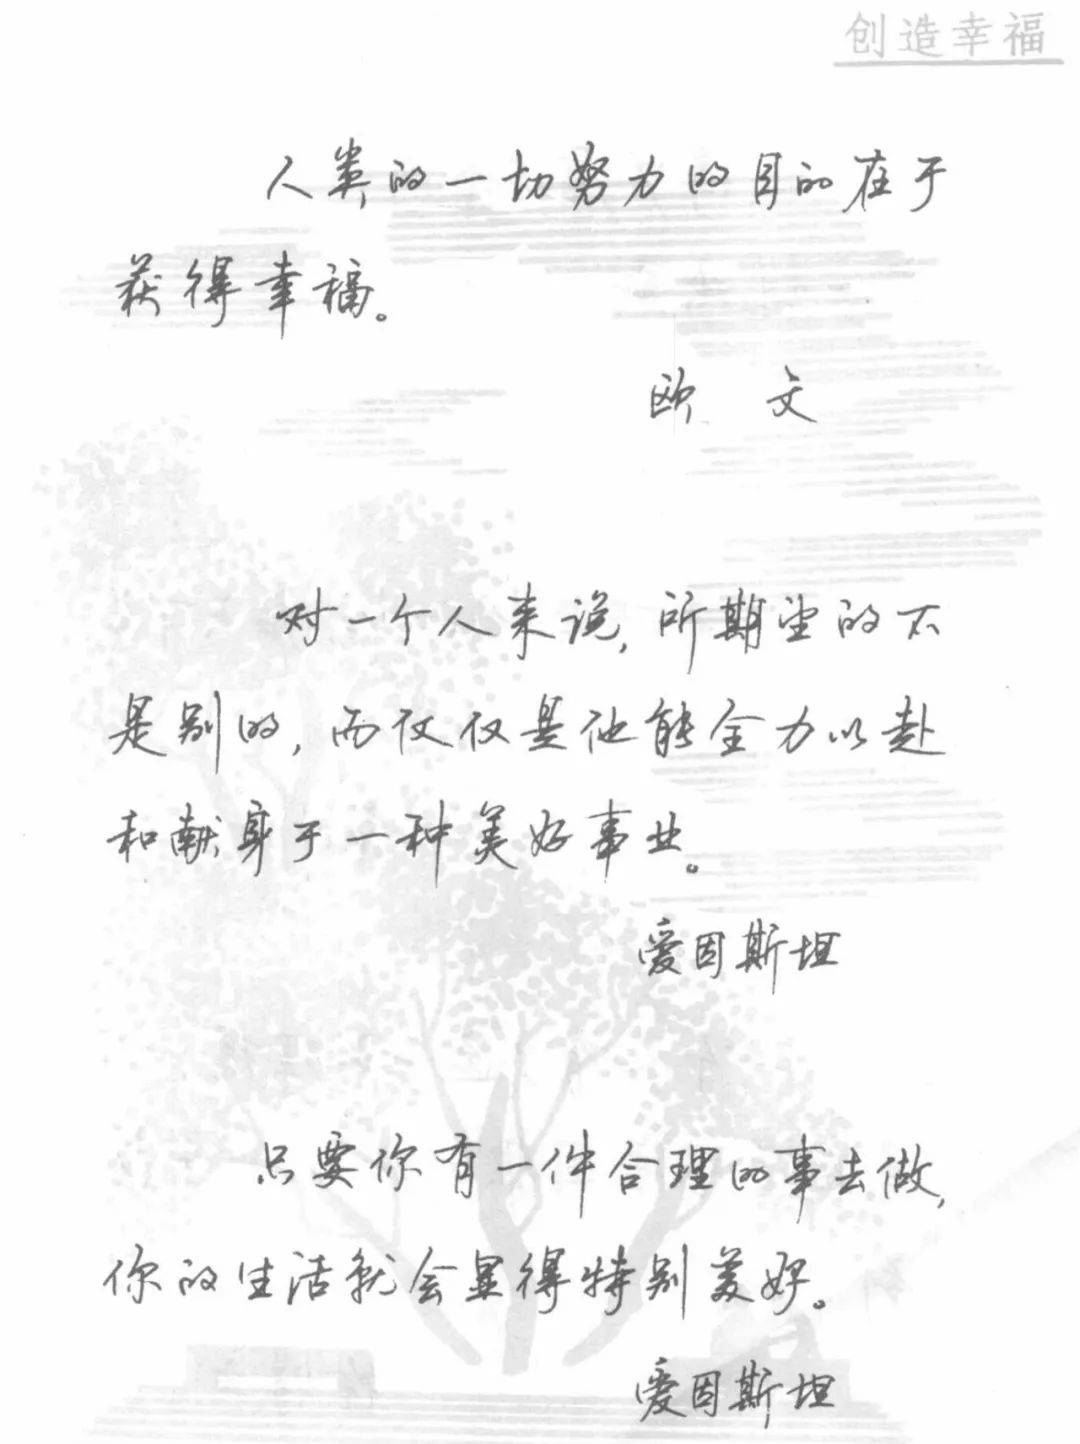 创造幸福
人类的一切努力的目的在于
获得幸福。
欧 文
对一个人来说,所期望的不
是别的,而仅仅是他能全力以赴
和献身于一种美好事业。
爱因斯坦
只要你有一件合理的事去做,
你的生活就会显得特别美好。
爱因斯坦